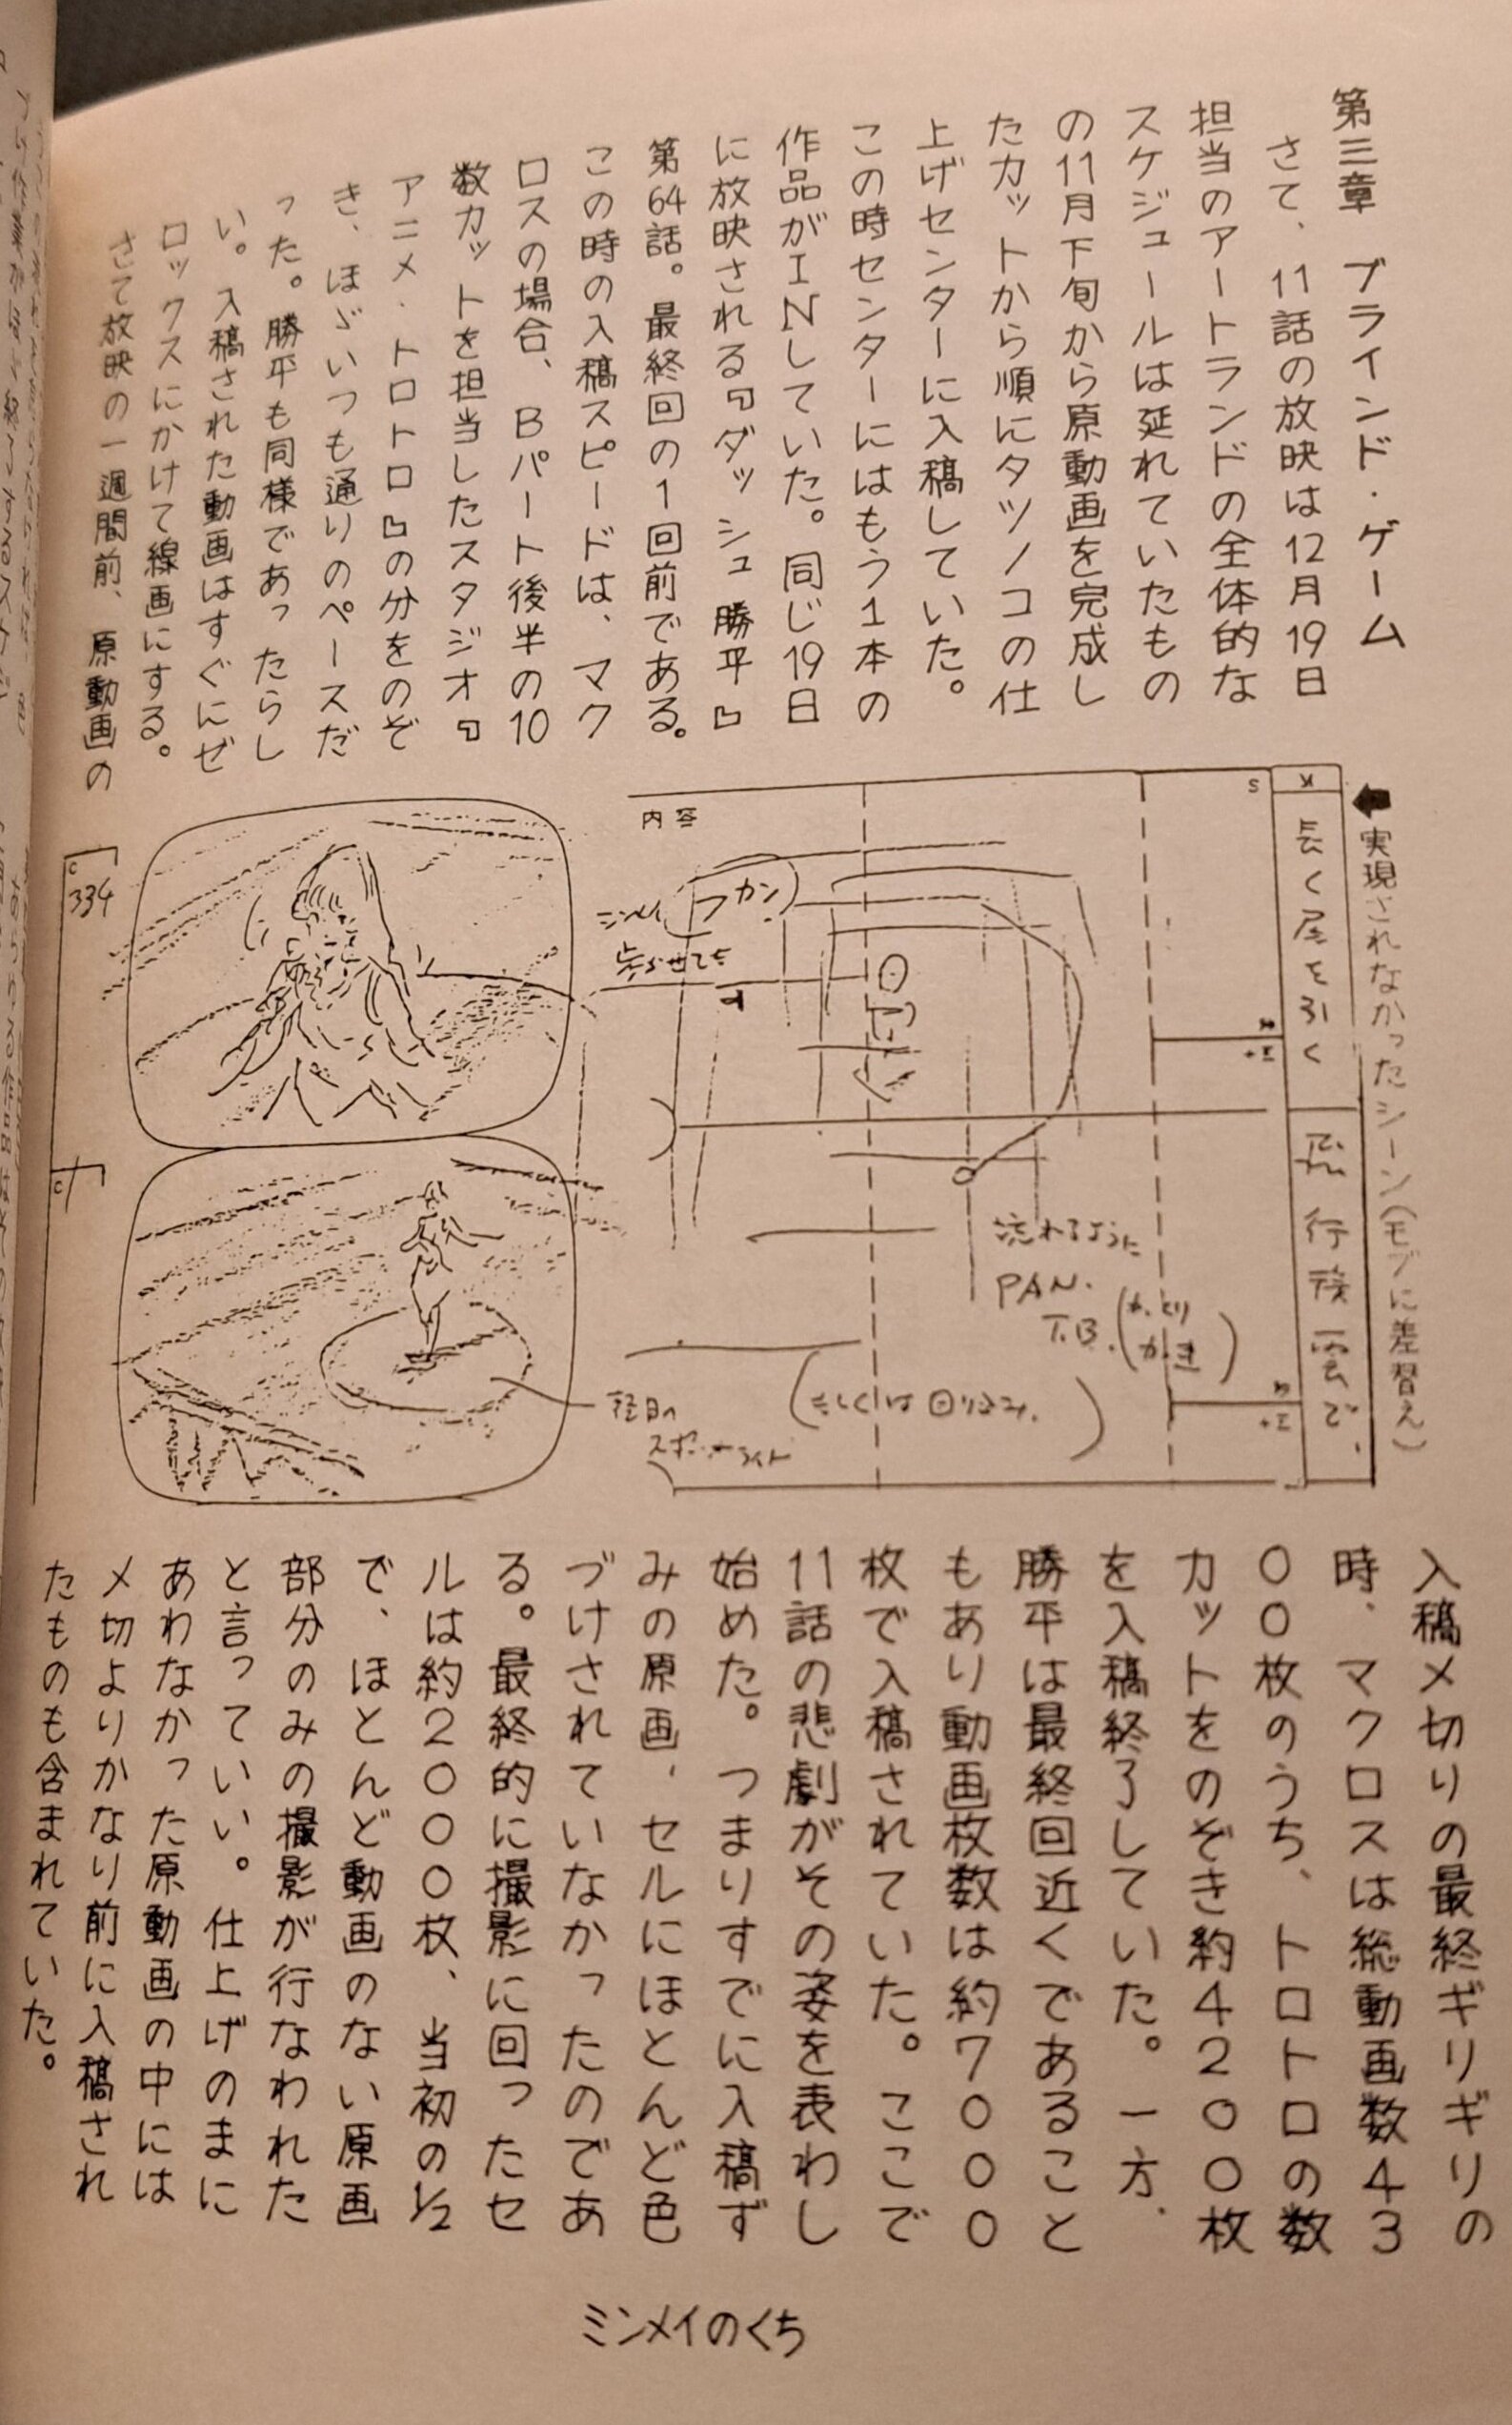 第三章　ブラインド・ゲーム
さて、11話の放映は12月19日
担当のアートランドの全体的な
スケジュールは延れていたもの
の11月下旬から原動画を完成し
たカットから順にタツノコの仕
上げセンターに入稿していた。
この時センターにはもう1本の
作品がINしていた。同じ19日
に放映される『ダッシュ勝平』
第64話。最終回の1回前である。
この時の入稿スピードは、マク
ロスの場合、Bパート後半の10
数カットを担当したスタジオ『
アニメ・トロトロ』の分をのぞ
き、ほゞいつも通りのペースだ
った。勝平も同様であったらし
い。入稿された動画はすぐにゼ
ロックスにかけて線画にする。
さて放映の一週間前、原動画の
←実現されなかったシーン(モブに差替え)
長く尾を引く
飛行機雲で、
S
K
内容
ミンメイ
フカン
流れるように
PAN.
T.B.
(もしくは回り込み.)
スポットライト
C
334
C
入稿〆切りの最終ギリギリの
時、マクロスは総動画数43
00枚のうち、トロトロの数
カットをのぞき約4200枚
を入稿終了していた。一方、
勝平は最終回近くであること
もあり動画枚数は約7000
枚で入稿されていた。ここで
11話の悲劇がその姿を表わし
始めた。つまりすでに入稿ず
みの原画、セルにほとんど色
づけされていなかったのであ
る。最終的に撮影に回ったセ
ルは約2000枚、当初の1/2
で、ほとんど動画のない原画
部分のみの撮影が行なわれた
と言っていい。仕上げのまに
あわなかった原動画の中には
〆切よりかなり前に入稿され
たものも含まれていた。
ミンメイのくち